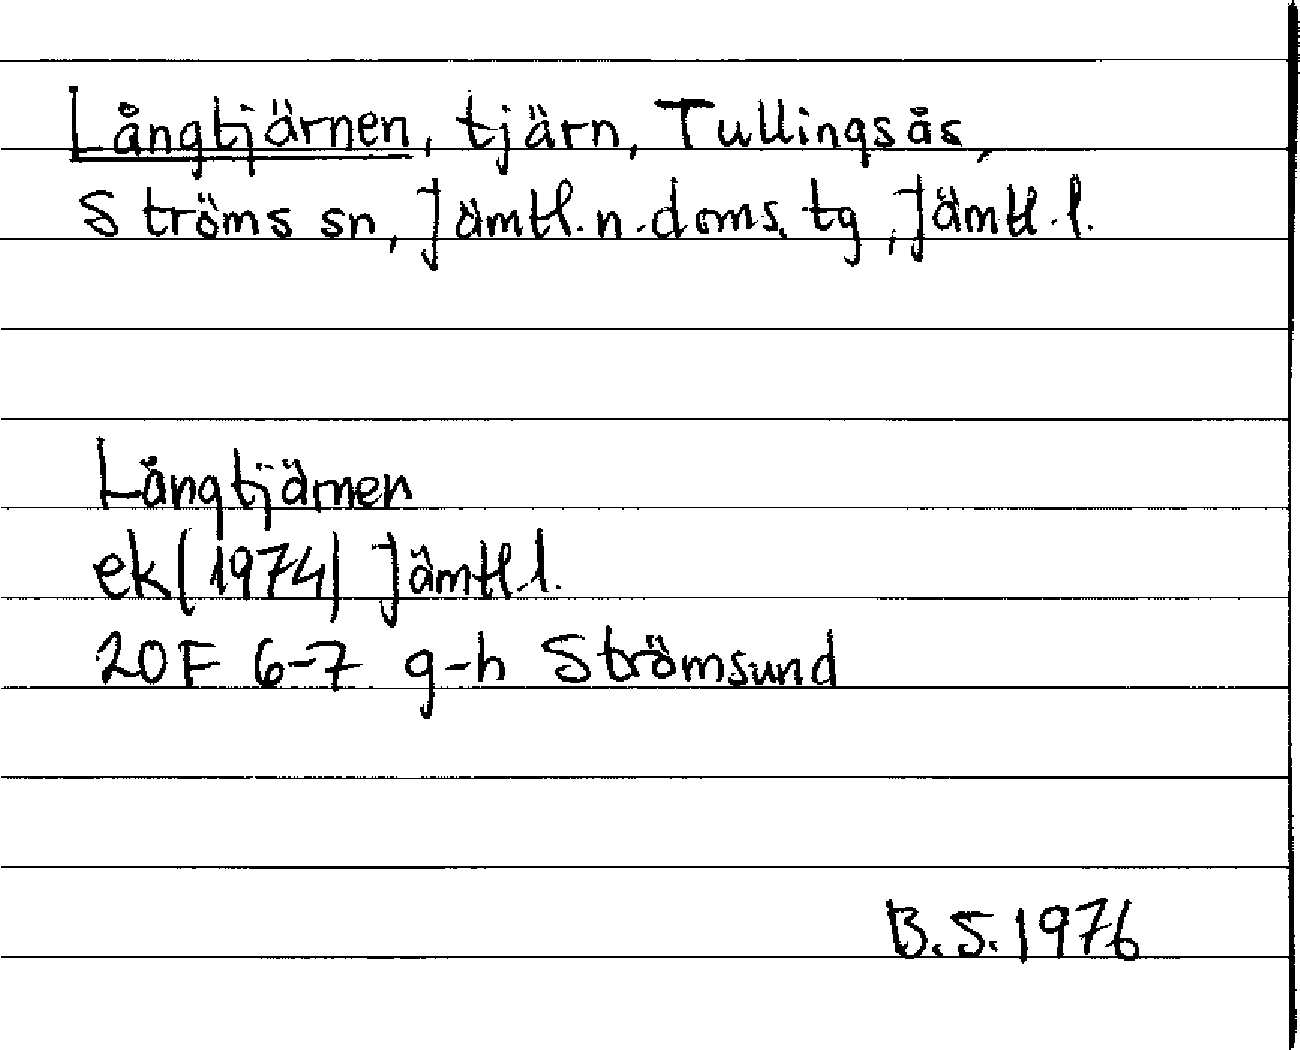 Långtjärnen, tjärn, Tullingsås,
Ströms sn, Jämtl. n. doms. tg, Jämtl. l.
Långtjärnen
ek (1974) Jämtl. l.
20F 6-7 g-h Strömsund
B.S. 1976